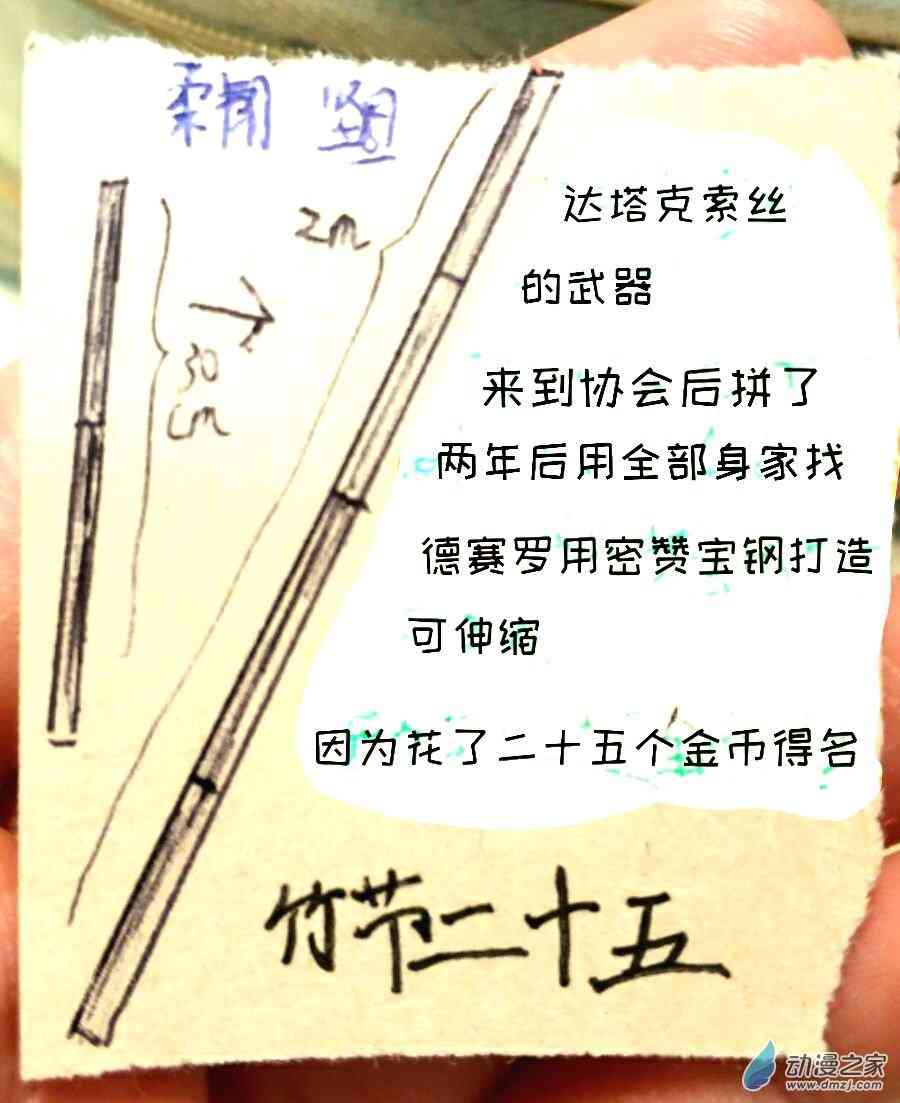 2m
30
cm
达塔克索丝
的武器
来到协会后拼了
两年后用全部身家找
德赛罗用密赞宝钢打造
可伸缩
因为花了二十五个金币得名
竹节二十五
动漫之家
www.dmzj.com